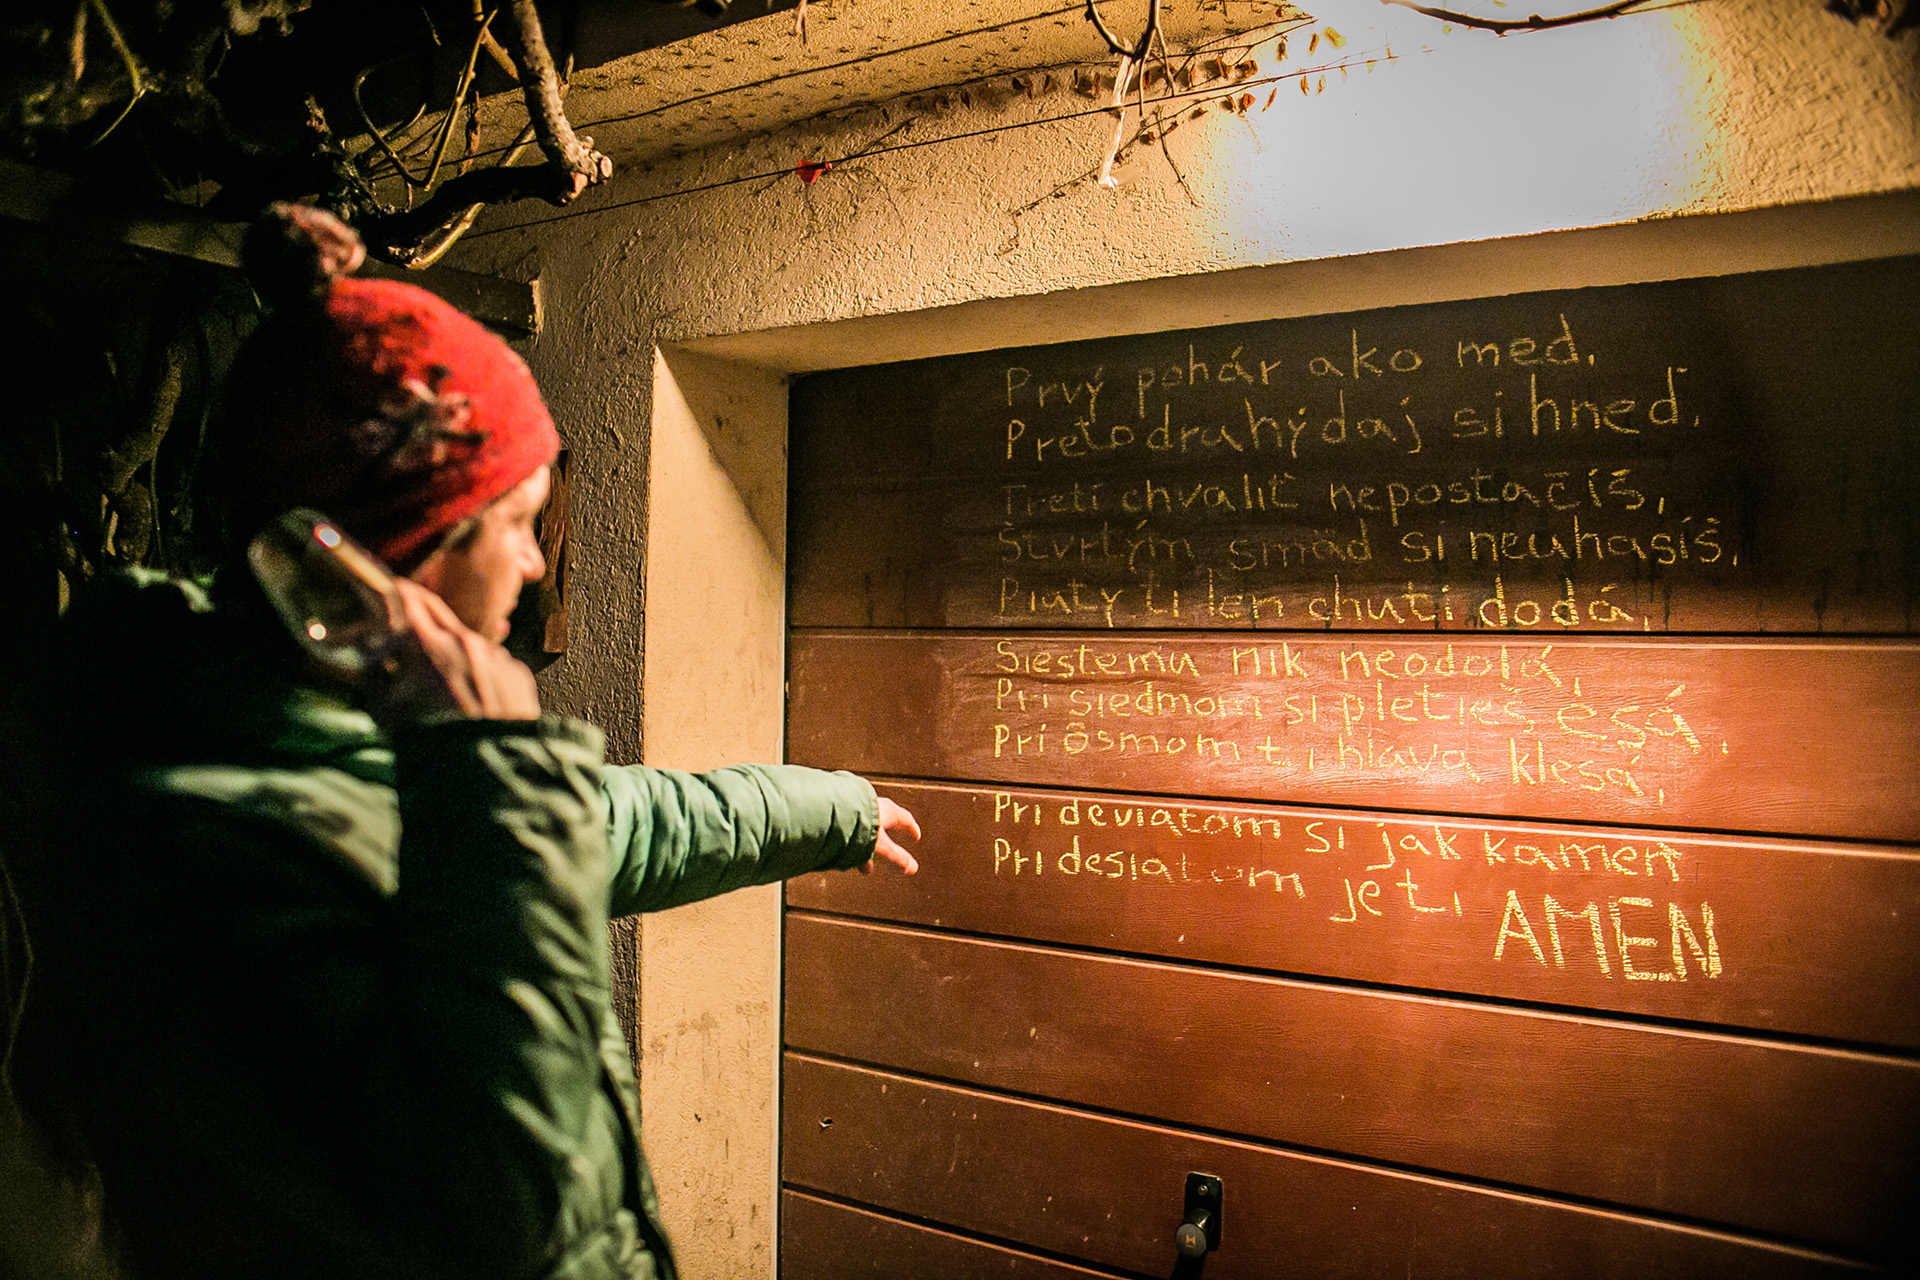 Prvý pohár ako med,
Preto druhý daj si hneď.
Tretí chváliť nepostačíš,
Štvrtým smäd si neuhasíš,
Piaty ti len chuti dodá,
Šiestemu nik neodolá,
Pri siedmom si pletieš esá,
Pri ôsmom ti hlava klesá,
Pri deviatom si jak kameň
Pri desiatom je ti AMEN